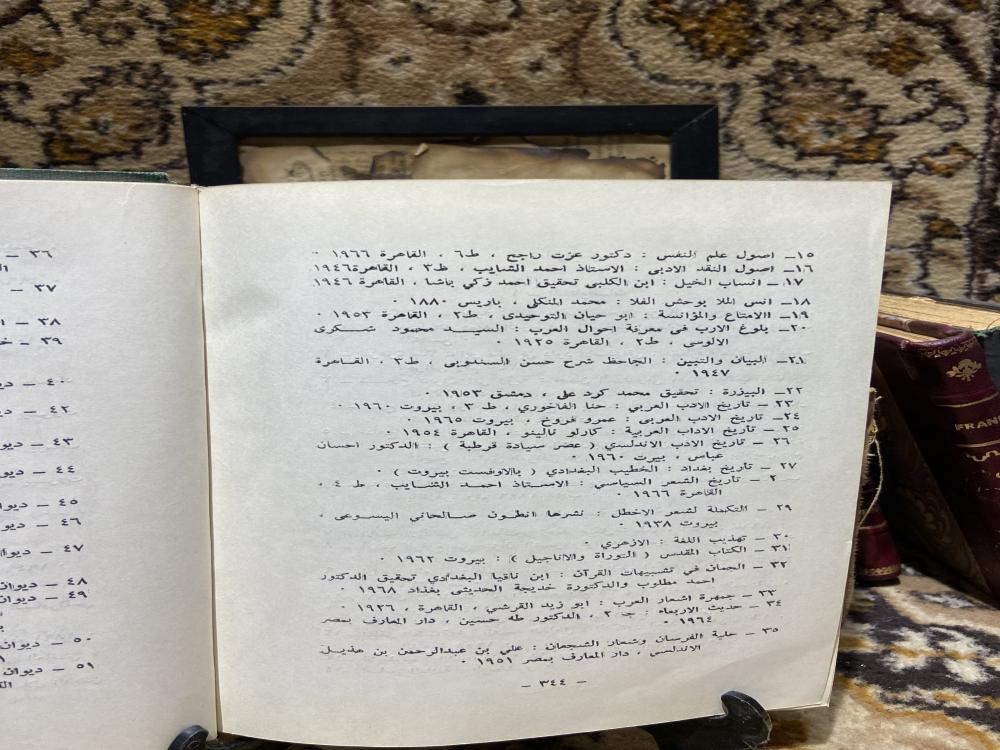 ١٥ـ اصول علم النفس : دكتور عزت راجح ، ط٦ ، القاهرة ١٩٦٦ ٠
١٦ـ اصول النقد الادبي : الاستاذ احمد الشايب ، ط٣ ، القاهرة١٩٤٦
١٧ـ انساب الخيل : ابن الكلبي تحقيق احمد زكي باشا ، القاهرة ١٩٤٦
١٨ـ انس الملا بوحش الفلا : محمد المنكلي ، باريس ١٨٨٠ ٠
١٩ـ الامتاع والمؤانسة : ابو حيان التوحيدي ، ط٢ ، القاهرة ١٩٥٣ ٠
٢٠ـ بلوغ الارب في معرفة احوال العرب : السيد محمود شكري
الالوسي ، ط٢ ، القاهرة ١٩٢٥ ٠
٢١ـ البيان والتبين : الجاحظ شرح حسن السندوبي ، ط٣ ، القاهرة
١٩٤٧ ٠
٢٢ـ البيزرة : تحقيق محمد كرد علي ، دمشق ١٩٥٣ ٠
٢٣ ـ تاريخ الادب العربي : حنا الفاخوري ، ط ٣ ، بيروت ١٩٦٠ ٠
٢٤ـ تاريخ الادب العربي : عمرو فروخ ، بيروت ١٩٦٥ ٠
٢٥ ـ تاريخ الاداب العربية : كارلو نالينو ، القاهرة ١٩٥٤ ٠
٢٦ ـ تاريخ الادب الاندلسي ( عصر سيادة قرطبة ) : الدكتور احسان
عباس ، بيرت ١٩٦٠ ٠
٢٧ ـ تاريخ بغداد : الخطيب البغدادي ( بالاوفست بيروت ) ٠
٢ ـ تاريخ الشعر السياسي : الاستاذ احمد الشايب ، ط ٤ ،
القاهرة ١٩٦٦ ٠
٢٩ ـ التكملة لشعر الاخطل : نشرها انطون صالحاني اليسوعي ،
بيروت ١٩٣٨ ٠
٣٠ ـ تهذيب اللغة : الازهري ٠
٣١ ـ الكتاب المقدس ( التوراة والاناجيل ) : بيروت ١٩٦٢ ٠
٣٢ ـ الجمان في تشبيهات القرآن : ابن ناقيا البغدادي تحقيق الدكتور
احمد مطلوب والدكتورة خديجة الحديثي بغداد ١٩٦٨ ٠
٣٣ ـ جمهرة اشعار العرب : ابو زيد القرشي ، القاهرة ، ١٩٢٦ ٠
٣٤ ـ حديث الاربعاء : جـ ٢ ، الدكتور طه حسين ، دار المعارف بمصر
١٩٦٤ ٠
٣٥ ـ حلية الفرسان وشعار الشجعان : علي بن عبدالرحمن بن هذيل
الاندلسي ، دار المعارف بمصر ١٩٥١ ٠
ـ ٣٤٤ ـ
٣٦ ـ
٣٧ ـ
٣٨ ـ
٣٩ ـ
٤٠ ـ
٤٢ ـ
٤٣ ـ ديوان
٤٤ ـ
٤٥ ـ
٤٦ ـ ديوان
٤٧ ـ ديوان
٤٨ ـ ديوان
٤٩ ـ ديوان
٥٠ ـ ديوان
٥١ ـ ديوان
FRAN